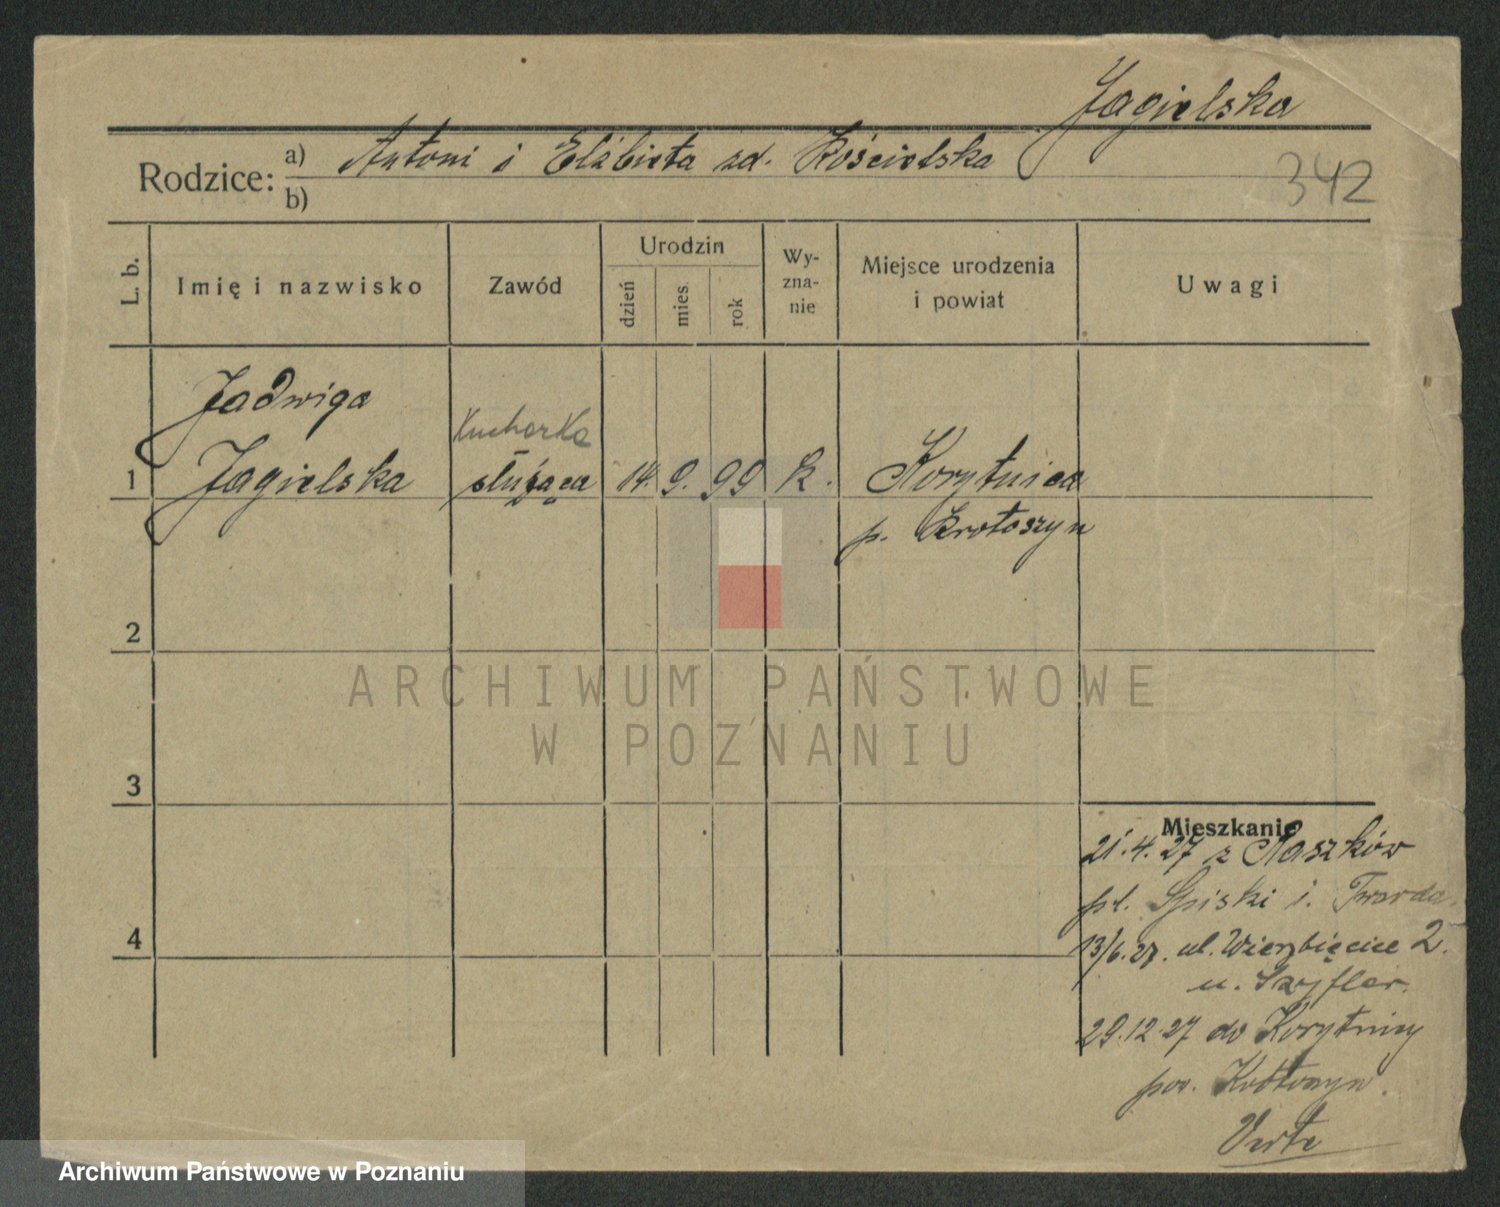 Jagielska
Rodzice: a) Antoni i Elżbieta zd. Kościelska
b)
342
L. b.
Imię i nazwisko
Zawód
Urodzin
dzień
mies.
rok
Wy-
zna-
nie
Miejsce urodzenia
i powiat
Uwagi
Jadwiga
Kucharka
1 Jagielska służąca 14. 9. 99 k. Korytnica
p. Krotoszyn
2
3
4
Mieszkanie
21.4.27 z Raszków
pl. Spiski i. Twarda
13/6.27. ul. Wierzbięcice 2.
u. Szyfler.
29.12.27 do Korytnicy
pow. Krotoszyn.
Verte
ARCHIWUM PAŃSTWOWE
W POZNANIU
Archiwum Państwowe w Poznaniu